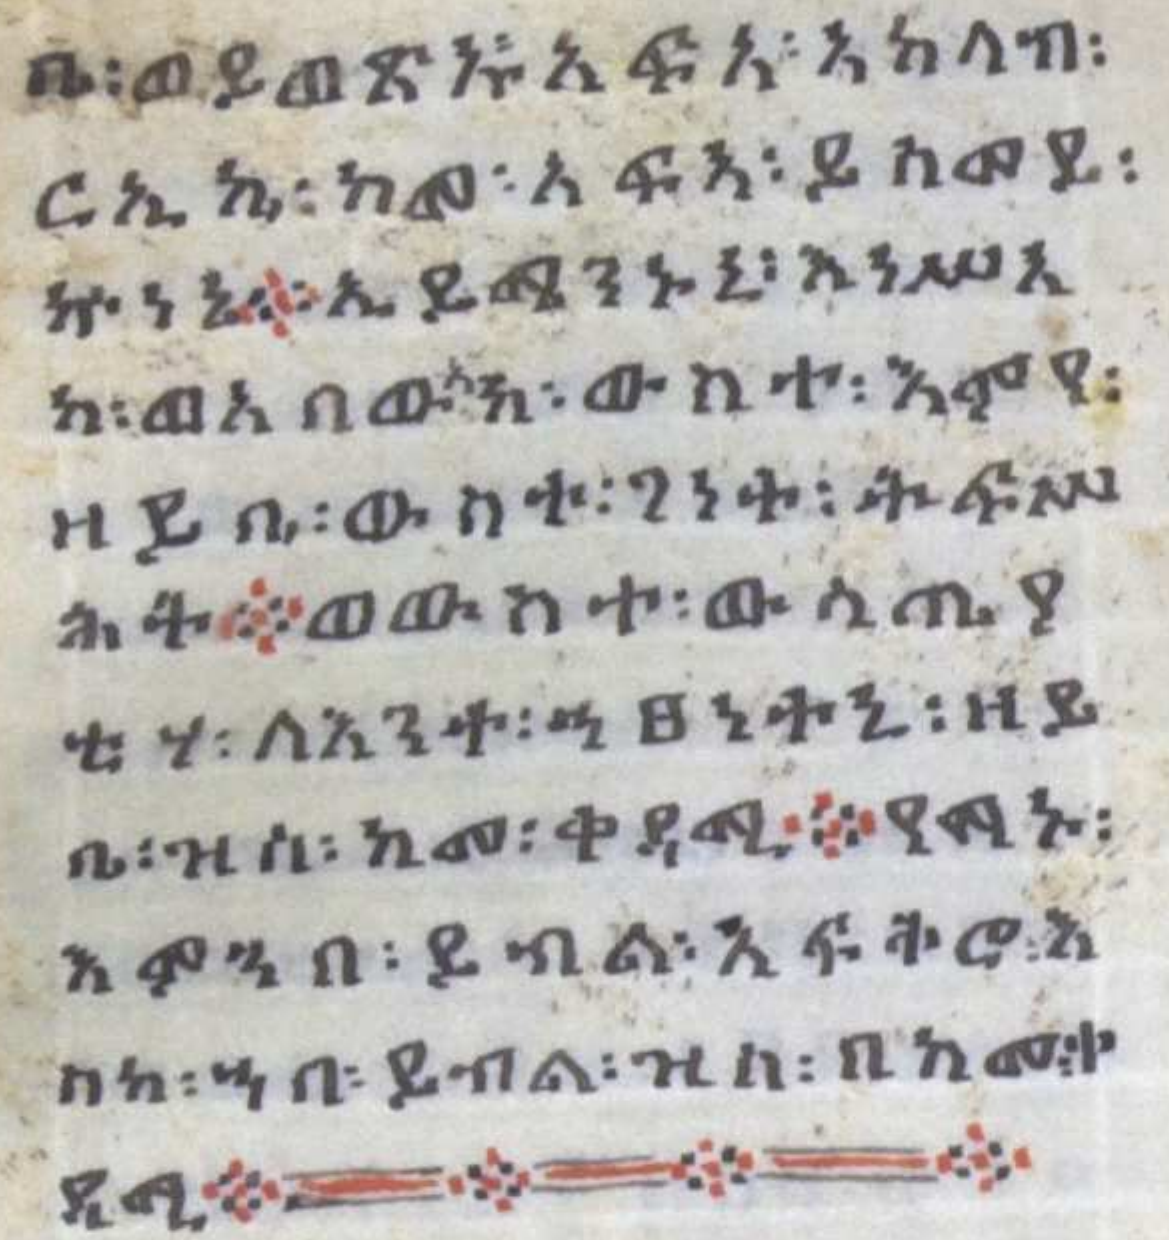 ቤ፡ወይወጽኡ፡እፍአ፡እከላብ፡
ርኢኬ፡ከመ፡አፍአ፡ይሰመይ፡
ኵነኔ፨ኢይሜንኑኒ፡እንሥእ
ከ፡ወአበውኣከ፡ውስተ፡እምየ፡
ዘይቤ፡ውስተ፡ገነት፡ትፍሥ
ሕት፨ወውስተ፡ውሳጢያ
ቲሃ፡ለእንተ፡ኀፀነተኒ፡ዘይ
ቤ፡ዝሰ፡ከመ፡ቀዳሚ፨የማኑ፡
እምኀበ፡ይብል፡አፍቅሮ፡እ
ስከ፡ኀበ፡ይብል፡ዝሰ፡በከመ፡ቀ
ዳሚ፨